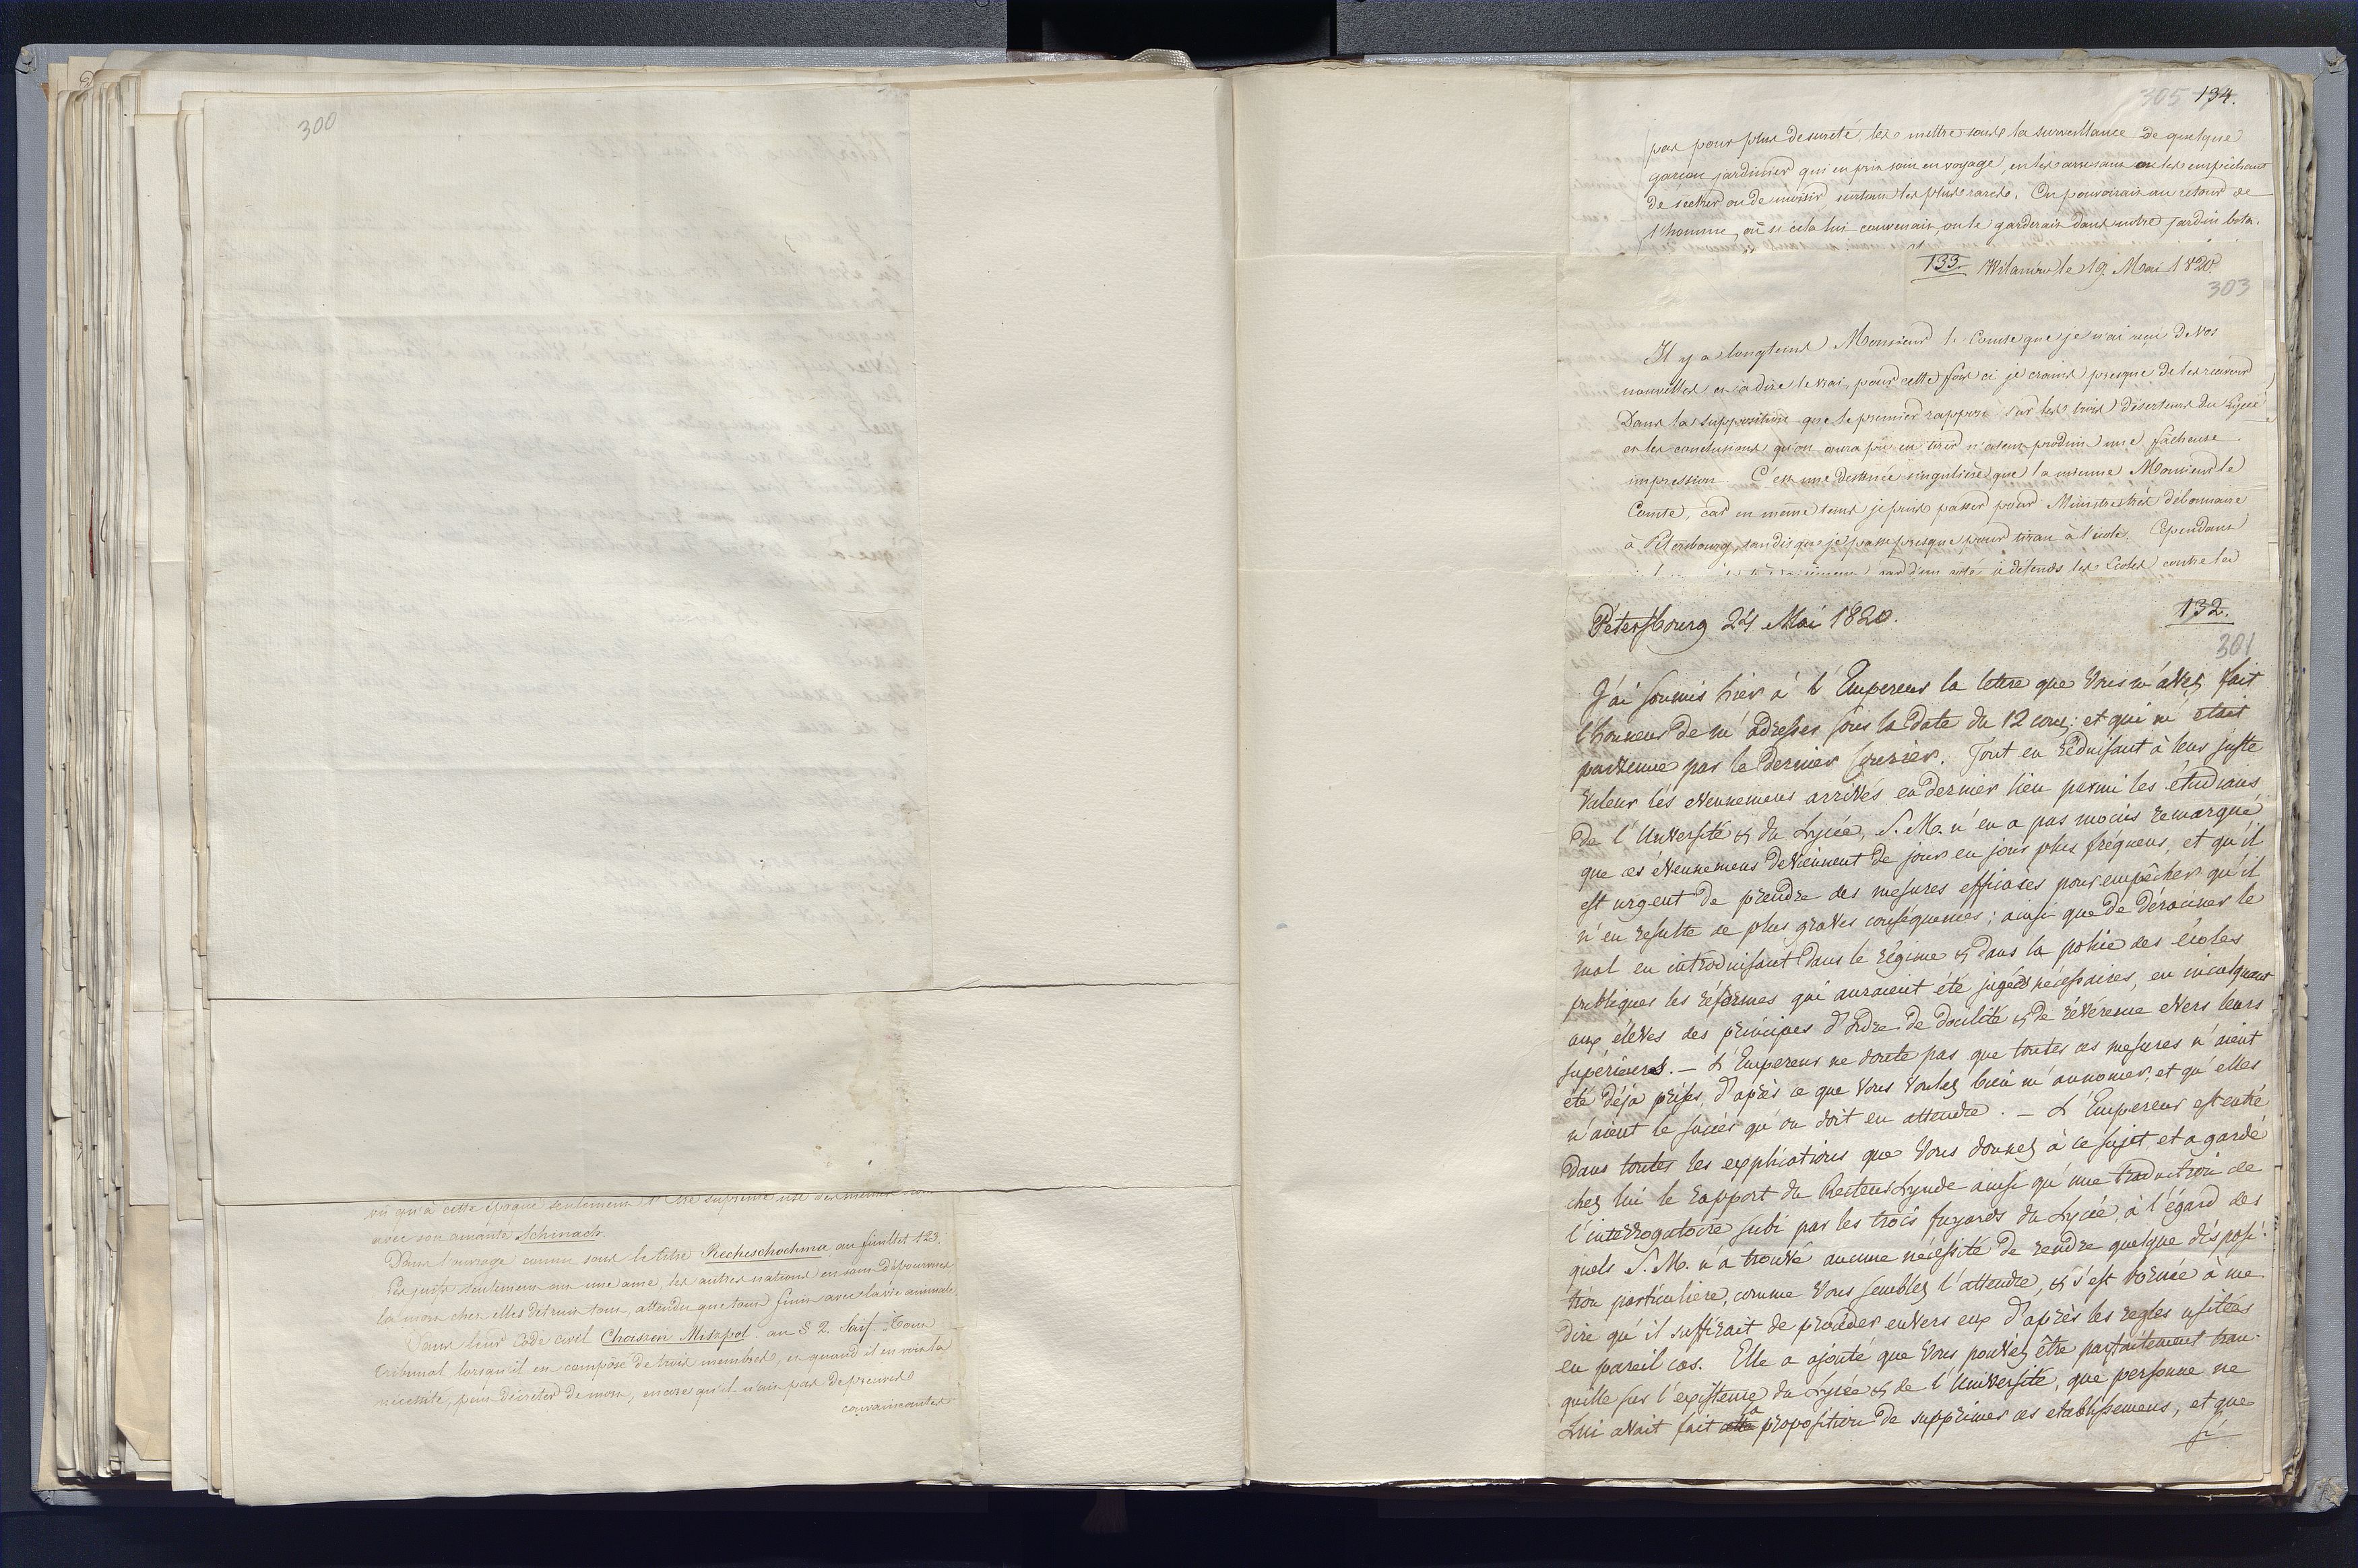 300
vu qu'à cette époque seulement l'Etre suprême
avec son amante Schinach.
Dans l'ouvrage connu sous le titre Recheschochma au feuillet 123.
Les juifs seulement ont une ame, les autres nations en sont dépourvues
la mort chez elles détruit tout, attendu que tout finit avec la vie animale.
Dans leur Code civil Choszen Miszpot au § 2. Saif. Tout
Tribunal lorsqu'il est composé de trois membres, et quand il en voit la
nécessité, peut décréter de mort, encore qu'il n'ait pas de preuves
convaincantes
305 134.
pas pour plus de sureté, les mettre sous la surveillance de quelque
garçon jardinier qui en prit soin en voyage, en les arrosant en les empêchant
de sécher ou de moisir surtout les plus rares. On pourroit au retour de
l'homme, où si cela lui convenait, on le garderait dans notre jardin bota.
133. Wilanów le 19 Mai 1820.
303
Il y a longtems Monsieur le Comte que je n'ai reçu de Vos
nouvelles et à dire le vrai, pour cette fois ci je crains presque de les recevoir
Dans la supposition que le premier rapport sur les trois déserteurs du Lycée
et les conclusions qu'on aura pû en tirer n'aient produit une fâcheuse
impression. C'est une destinée singulière que la mienne Monsieur le
Comte, car en même tems je puis passer pour Ministre très débonnaire
à Petersbourg, tandis que je passe presque pour tiran à l'école. Cependant
car d'un côté je défends les Ecoles contre les
Pétersbourg 24 Mai 1820. 132.
301
J'ai soumis hier à l'Empereur la lettre que Vous m'avez fait
l'honneur de m'adresser sous la date du 12 cour; et qui m'était
parvenue par le dernier Courier. Tout en réduisant à leur juste
valeur les evennemens arrivés en dernier lieu parmi les étudians
de l'Université & du Lycée, S. M. n'en a pas moins remarqué
que ces évennemens deviennent de jour en jour plus fréquens, et qu'il
est urgent de prendre des mesures efficaces pour empêcher qu'il
n'en resulte de plus graves conséquences; ainsi que de déraciner le
mal en introduisant dans le régime & dans la police des écoles
publiques les réformes qui auraient été jugées nécessaires, en inculquant
aux éleves des principes d'ordre de docilité & de révérence envers leurs
supérieurs. — L'Empereur ne doute pas que toutes ces mesures n'aient
été déja prises, d'après ce que Vous voulez bien m'annoncer, et qu'elles
n'aient le succès qu'on doit en attendre. — L'Empereur est entré
dans toutes les explications que Vous donnez à ce sujet et a gardé
chez lui le rapport du Recteur Lynde ainsi qu'une traduction de
l'interrogatoire subi par les trois fuyards du Lycée, à l'égard des
quels S. M. n'a trouvé aucune nécessité de rendre quelque disposi-
tion particulière, comme Vous semblez l'attendre, & s'est bornée à me
dire qu'il suffirait de procéder envers eux d'après les regles usitées
en pareil cas. Elle a ajouté que Vous pouvez être parfaitement tran-
quille sur l'existence du Lycée & de l'Université, que personne ne
Lui avait fait la proposition de supprimer ces etablissemens, et que
si